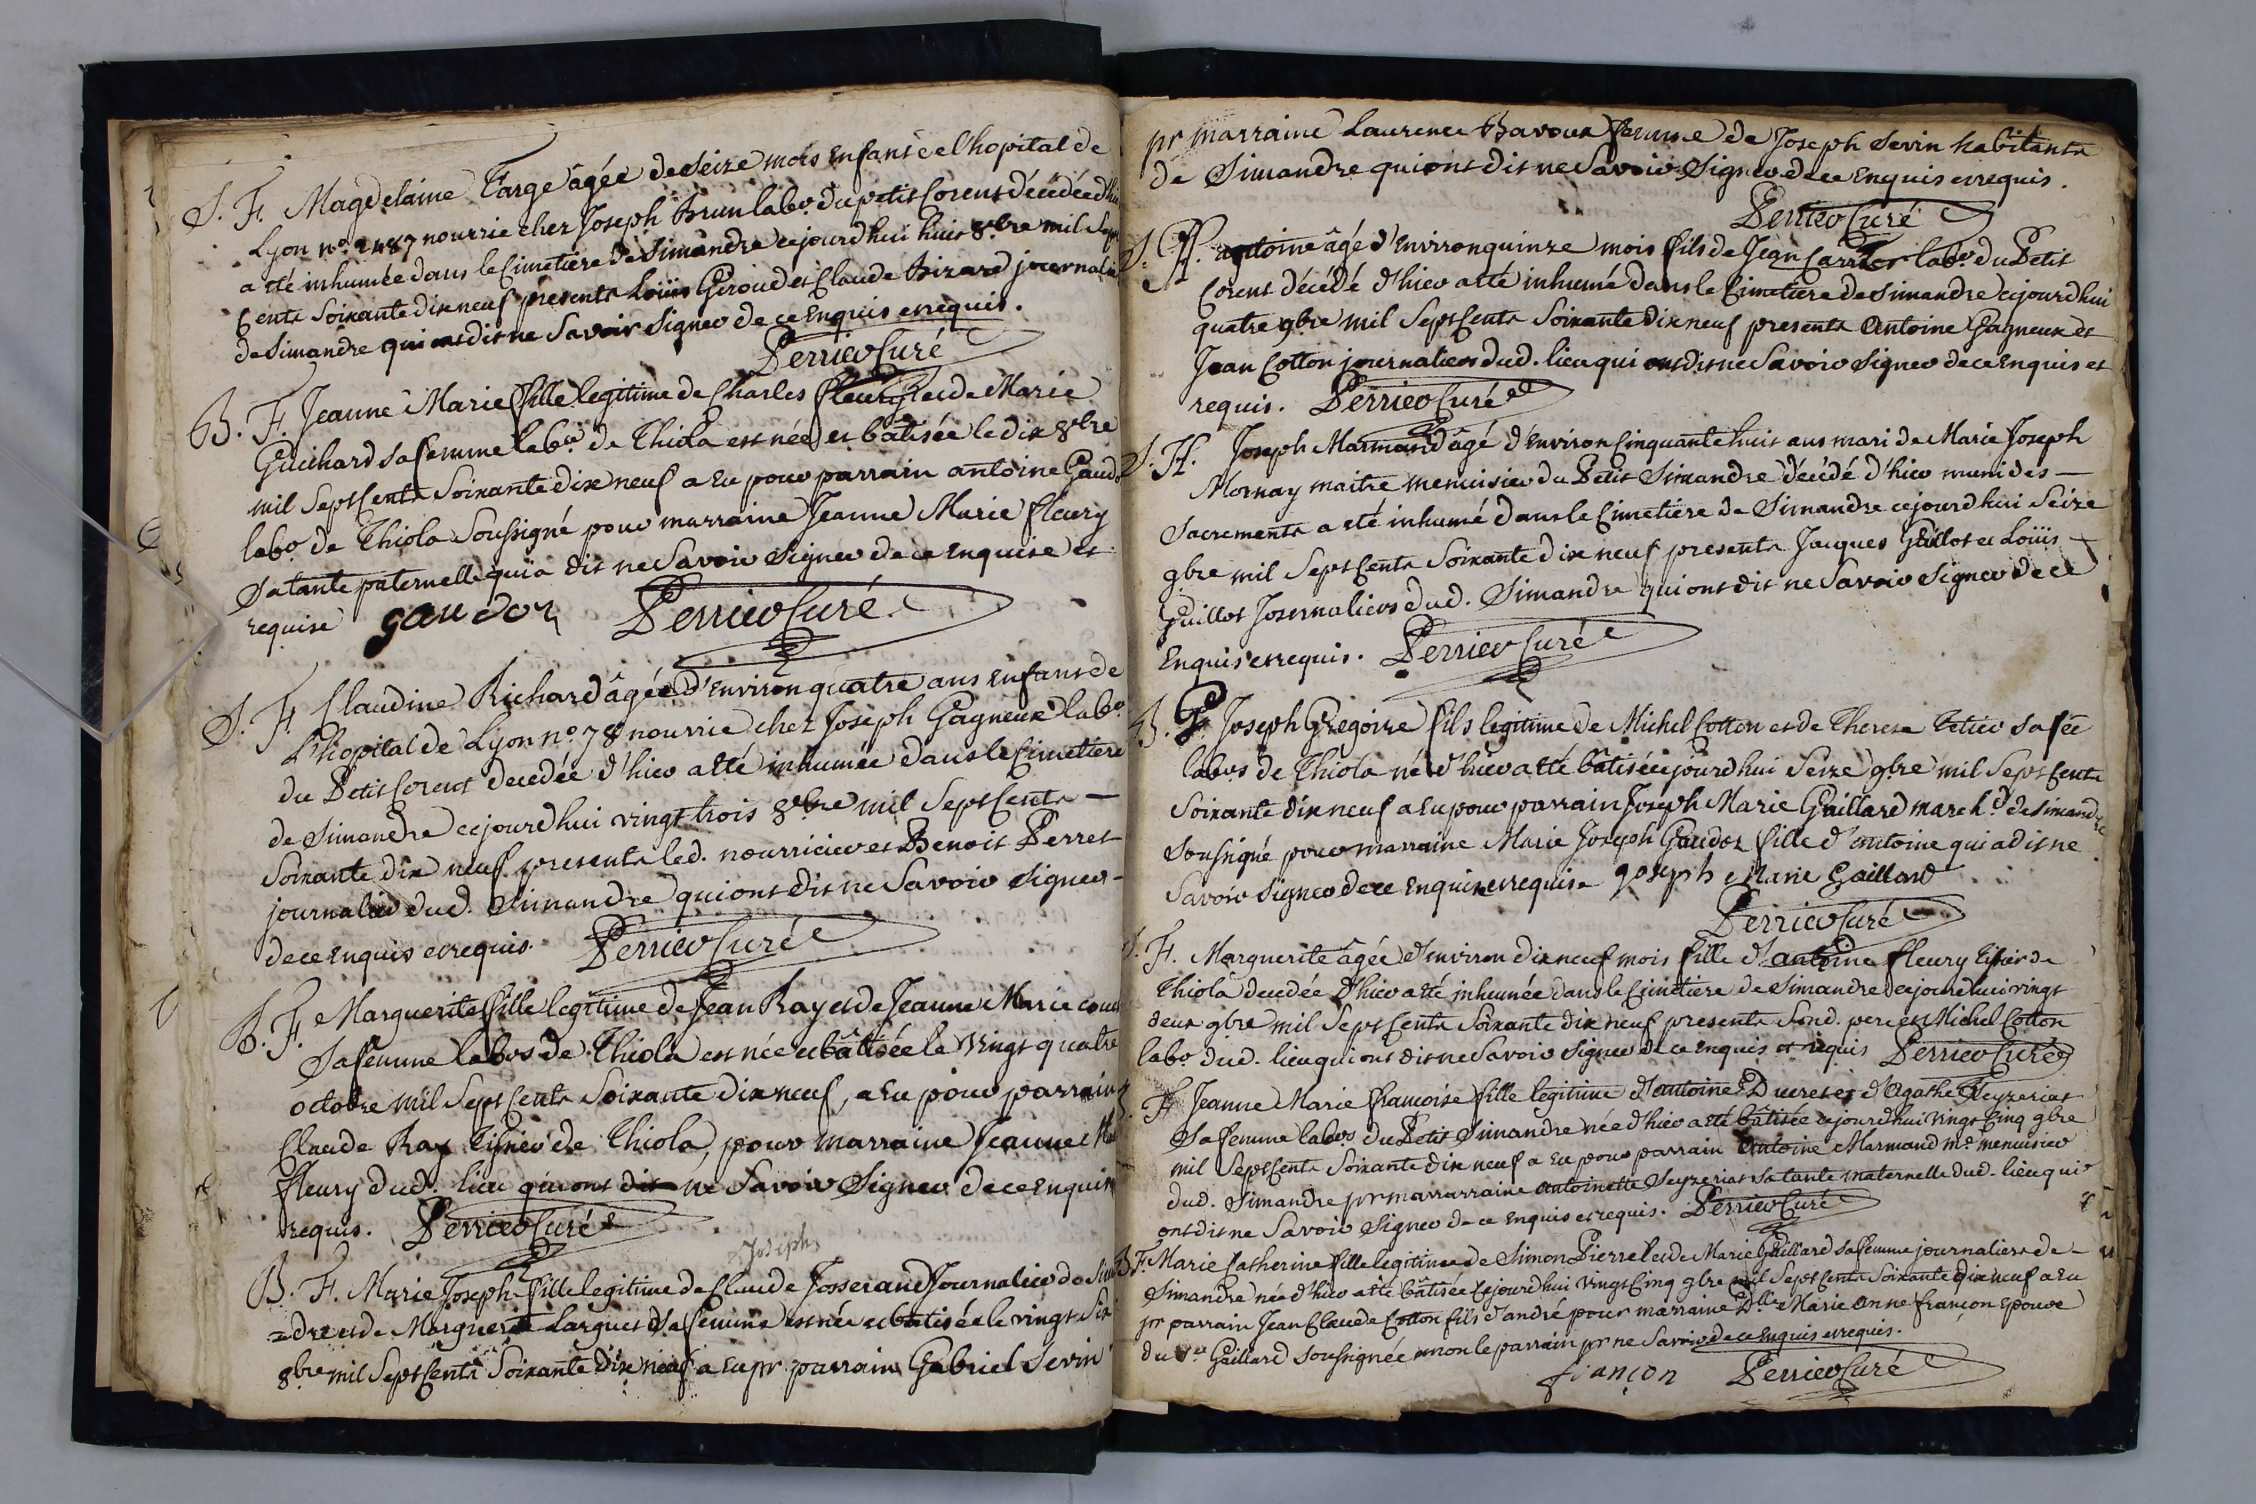 S. F. Magdelaine Farge âgée de Seize mois Enfant de l'hopital de
Lyon n.º 2487 nourrie chez Joseph Brun labo.r du petit Corent décédée d'hi
a eté inhumée dans le Cimetiere de Simandre cejourdhui huit 8bre mil Sept
Cents Soixante dix neuf presents Loüis Giroud et Claude Bizard journali
de Simandre qui ont dit ne Savoir Signer de ce Enquis et requis.
Perrier Curé
B. F. Jeanne Marie fille legitime de Charles fleury et de Marie
Guichard sa femme lab.rs de Thiola est née et bâtisée le dix 8bre
mil Sept Cents Soixante dix neuf a Eu pour parrain antoine Gaudo
labo.r de Thiola Soussigné pour marraine Jeanne Marie fleury
Sa tante paternelle qui a dit ne Savoir Signer de ce Enquise et
requise gaudon Perrier Curé
S. F. Claudine Richard âgée d'Environ quatre ans Enfant de
L'hopital de Lyon n.º 78 nourrie chez Joseph Gagneux labo.r
du Petit Corent decedée d'hier a eté inhumée dans le Cimetiere
de Simandre cejourdhui vingt trois 8bre mil Sept Cents —
Soixante dix neuf presents led. nourricier et Benoit Perret
journalier dud. Simandre qui ont dit ne Savoir Signer -
de ce Enquis et requis. Perrier Curé
B. F. Marguerite fille legitime de Jean Ray et de Jeanne Marie
Sa femme labo.rs de Thiola est née et bâtisée le Vingt quatre
octobre mil Sept Cents Soixante dix neuf, a Eu pour parrain
Claude Ray Tissier de Thiola, pour marraine Jeanne
fleury dud. lieu qui ont dit ne Savoir Signer de ce Enquis
requis. Perrier Curé
Joseph
B. F. Marie Joseph fille legitime de Claude Josserand Journalier de Sim
=dre et de Marguerite Larguet Sa femme est née et batisée le vingt Six
8bre mil Sept Cents Soixante Dix neuf a Eu pr. parrain Gabriel Sevin
pr marraine Laurence Bavoux femme de Joseph Sevin habitants
de Simandre qui ont dit ne Savoir Signer de ce Enquis et requis.
Perrier Curé
S. H. antoine âgé d'Environ quinze mois fils de Jean Carrier labo.r du Petit
Corent décédé d'hier a eté inhumé dans le Cimetiere de Simandre cejourdhui
quatre 9bre mil Sept Cents Soixante Dix neuf presents Antoine Gagneux et
Jean Cotton journaliers dud. lieu qui ont dit ne Savoir Signer de ce Enquis et
requis. Perrier Curé
S. H. Joseph Marmand âgé d'Environ Cinquante huit ans mari de Marie Joseph
Mornay maitre menuisier du Petit Simandre décédé d'hier muni des —
Sacrements a eté inhumé dans le Cimetiere de Simandre cejourdhui Seize
9bre mil Sept Cents Soixante Dix neuf presents Jacques Guillot et Loüis
Guillot Journaliers dud. Simandre qui ont dit ne Savoir Signer de ce
Enquis et requis. Perrier Curé
B. G. Joseph Gregoire fils legitime de Michel Cotton et de Therese Tetier sa fee
labo.rs de Thiola né d'hier a eté bâtisé cejourdhui Seize 9bre mil Sept Cents
Soixante dix neuf a Eu pour parrain Joseph Marie Gaillard march.d de Simandre
Soussigné pour marraine Marie Joseph Gaudon fille d'antoine qui a dit ne
Savoir Signer de ce Enquise et requise Joseph Marie Gaillard
Perrier Curé
S. F. Marguerite âgée d'environ dix neuf mois fille d'antoine fleury Tissier de
Thiola decedée d'hier a eté inhumée dans le Cimetiere de Simandre cejourdhui vingt
deux 9bre mil Sept Cents Soixante Dix neuf presents Sond. pere et Michel Cotton
labo.r dud. lieu qui ont dit ne Savoir Signer de ce Enquis et requis Perrier Curé
F. Jeanne Marie francoise fille legitime d'antoine Ducret et d'Agathe Seyzeriat
Sa femme labo.rs du Petit Simandre née d'hier a eté bâtisée cejourdhui Vingt Cinq 9bre
mil Sept Cents Soixante Dix neuf a Eu pour parrain Antoine Marmand m.e menuisier
dud. Simandre pr marrarraine Antoinette Seyzeriat Sa tante maternelle dud. lieu qui
ont dit ne Savoir Signer de ce Enquis et requis. Perrier Curé
B. F. Marie Catherine fille legitime de Simon Pierre et de Marie Gaillard sa femme journaliers de -
Simandre née d'hier a eté bâtisée Cejourdhui Vingt Cinq 9bre mil Sept Cents Soixante Dix neuf a Eu
pr parrain Jean Claude Cotton fils d'andré pour marraine D.lle Marie Anne françon Epouse
du Gaillard Soussignée non le parrain pr ne Savoir de ce Enquis et requis.
françon Perrier Curé